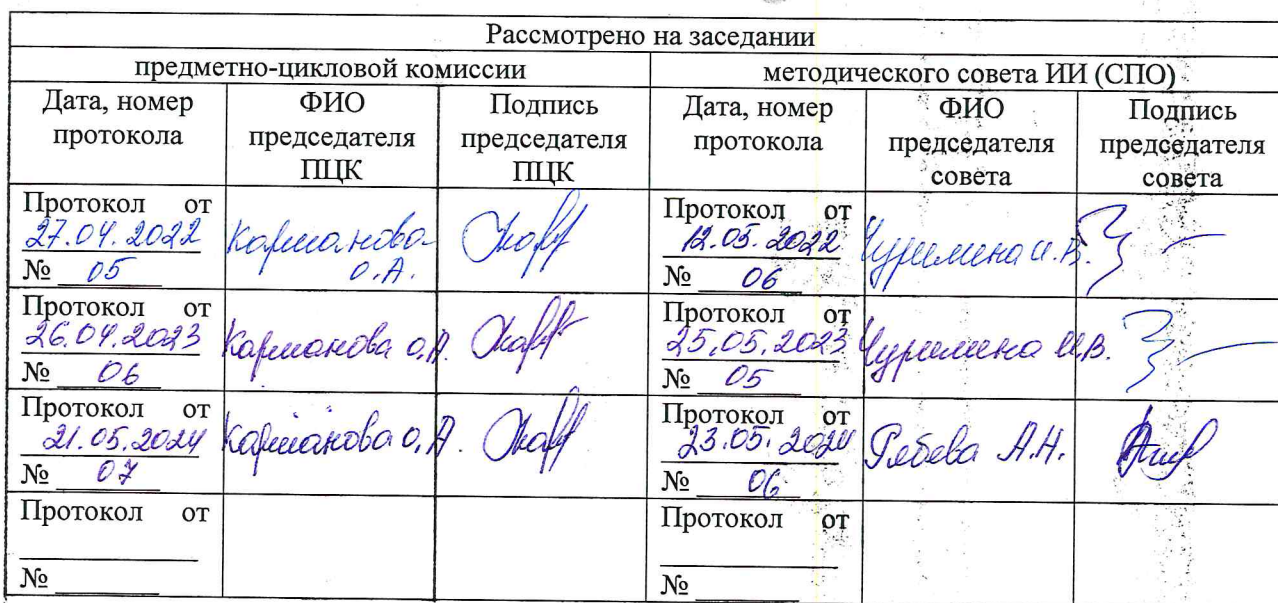 Рассмотрено на заседании
предметно-цикловой комиссии
методического совета ИИ (СПО)
Дата, номер протокола
ФИО председателя ПЦК
Подпись председателя ПЦК
Дата, номер протокола
ФИО председателя совета
Подпись председателя совета
Протокол от
27.04.2022
№ 05
Карманова
О.А.
Протокол от
12.05.2022
№ 06
И.В.
Протокол от
26.04.2023
№ 06
Карманова О.А.
Протокол от
25.05.2023
№ 05
И.В.
Протокол от
21.05.2024
№ 07
Карманова О.А.
Протокол от
23.05.2024
№ 06
А.Н.
Протокол от
№
Протокол от
№